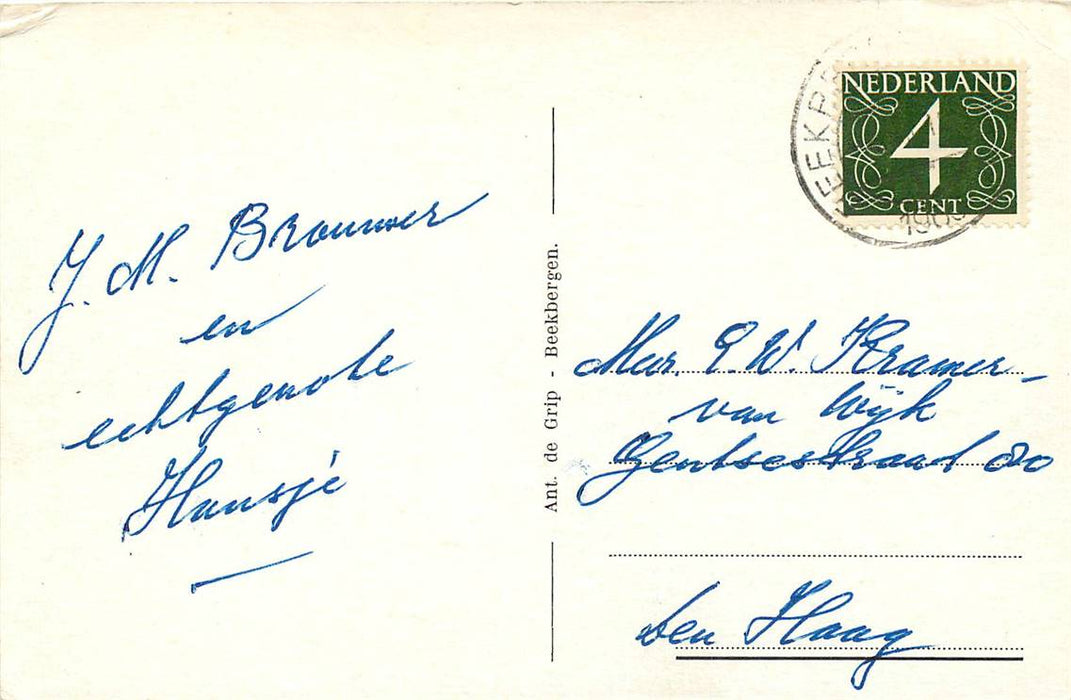 J. M. Brouwer
en
echtgenote
Hansje
Ant. de Grip - Beekbergen.
NEDERLAND
4
CENT
Mevr. E. W. Kramer-
van Wijk
Gentsestraat
Den Haag